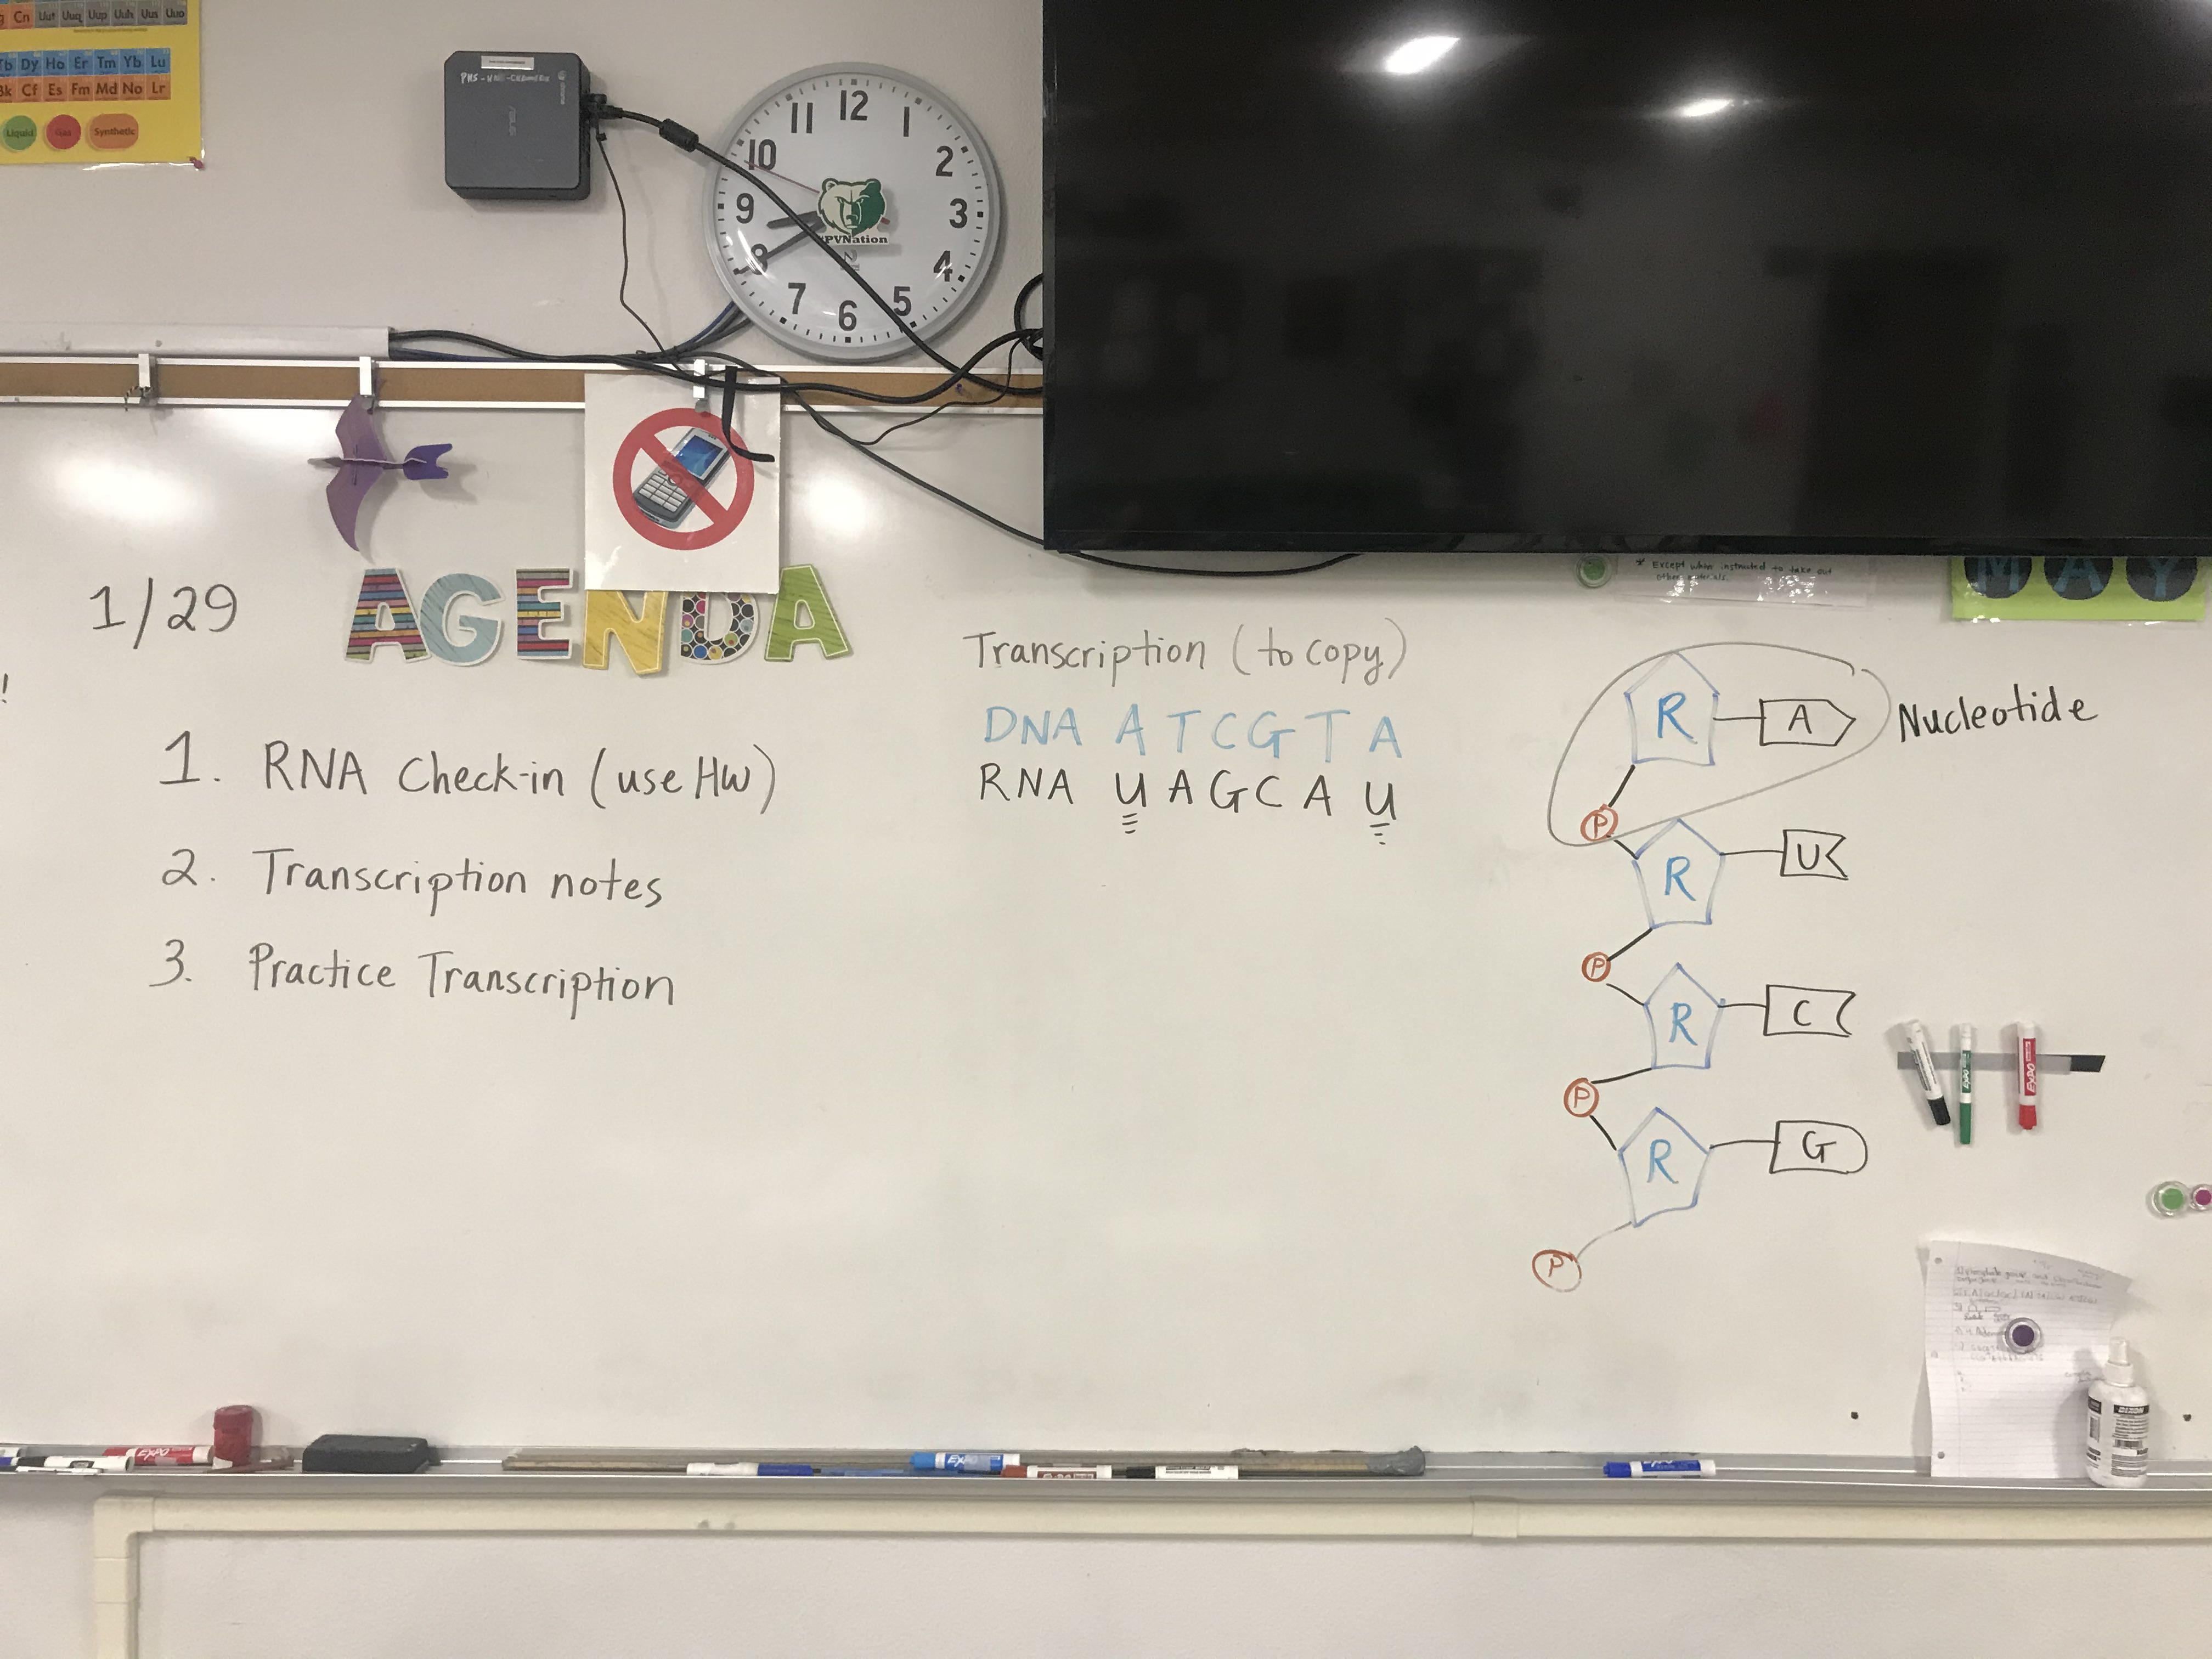 Cn Uut Uuq Uup Uuh Uus Uuo
Tb Dy Ho Er Tm Yb Lu
Bk Cf Es Fm Md No Lr
Liquid Gas Synthetic
ASUS
12
11 1
10 2
9 3
8 4
7 5
6
PVNation
1/29
AGENDA
!
1. RNA Check-in (use HW)
2. Transcription notes
3. Practice Transcription
Transcription (to copy)
DNA A T C G T A
RNA U A G C A U
* Except when instructed to take out
other materials.
MAY
R A Nucleotide
P
R U
P
R C
P
R G
P
EXPO
EXPO
EXPO
EXPO
EXPO